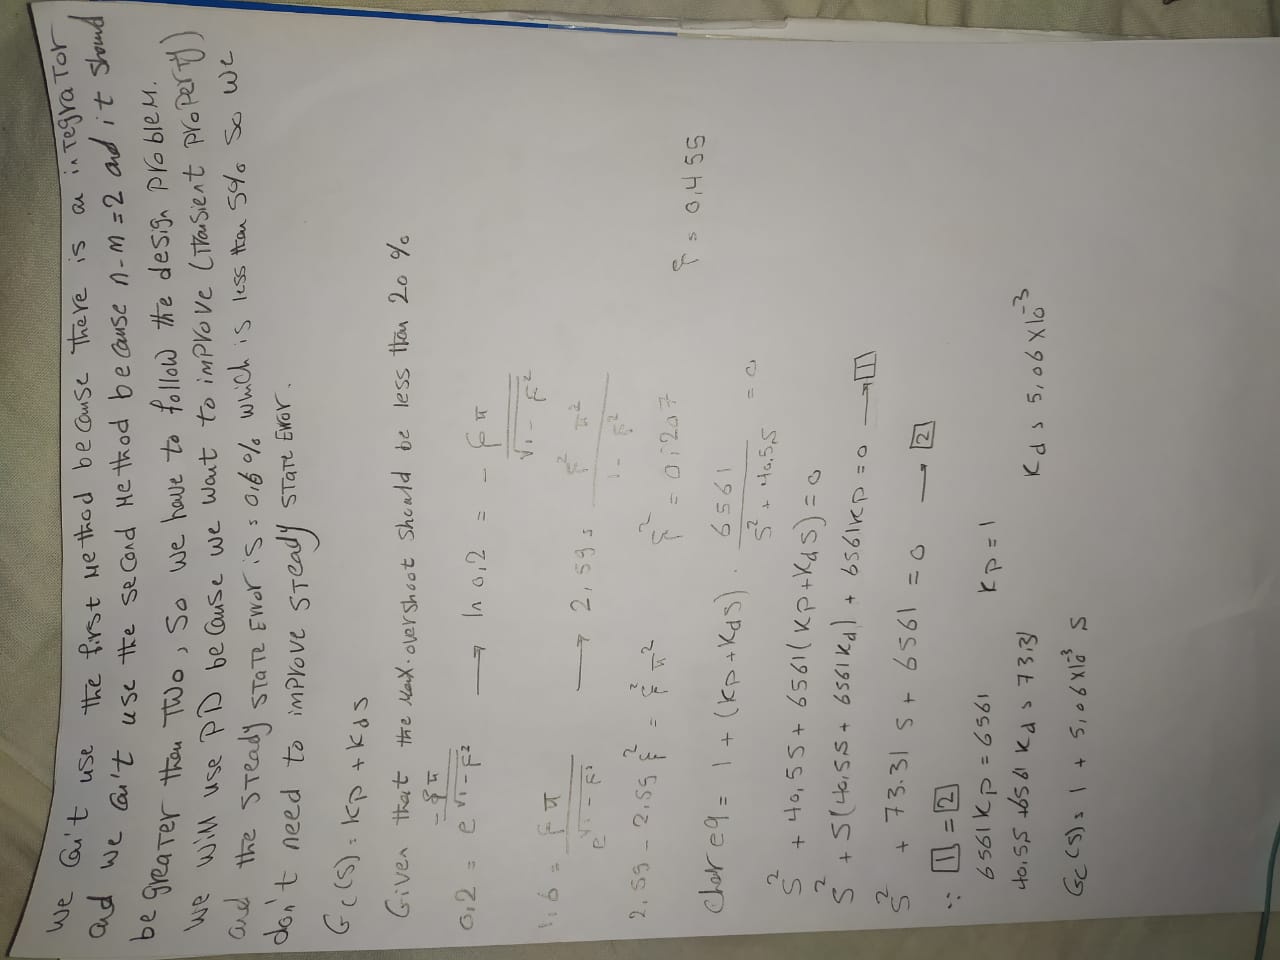 We Can't use the first Method because There is an inTegraTor
and we can't use the Second Method because n-m=2 and it should
be greaTer than Two, So we have to follow the design Problem.
We Will use PD because we want to imProve (Transient ProPerTy)
and the STeady STaTe Error is = 0,6% which is less than 5% So we
don't need to imProve STeady STaTe Error.
Gc(S) = Kp + Kd S
Given that the Max. overshoot Should be less than 20 %
0,2 = e^(-ξπ/√(1-ξ²)) → ln 0,2 = - ξπ/√(1-ξ²)
1,6 = ξπ/e^√(1-ξ²) → 2,59 = ξ²π²/(1-ξ²)
2,59 - 2,59 ξ² = ξ² π² ξ² = 0,207 ξ = 0,455
Char eq = 1 + (Kp + Kd S) . 6561/(S² + 40,5S) = 0
S² + 40,5S + 6561(Kp + Kd S) = 0
S² + S(40,55 + 6561 Kd) + 6561Kp = 0 → [1]
S² + 73.31 S + 6561 = 0 → [2]
∵ [1] = [2]
6561 Kp = 6561 Kp = 1
40,55 + 6561 Kd = 73,31 Kd = 5,06 X10^-3
Gc(S) = 1 + 5,06 X10^-3 S